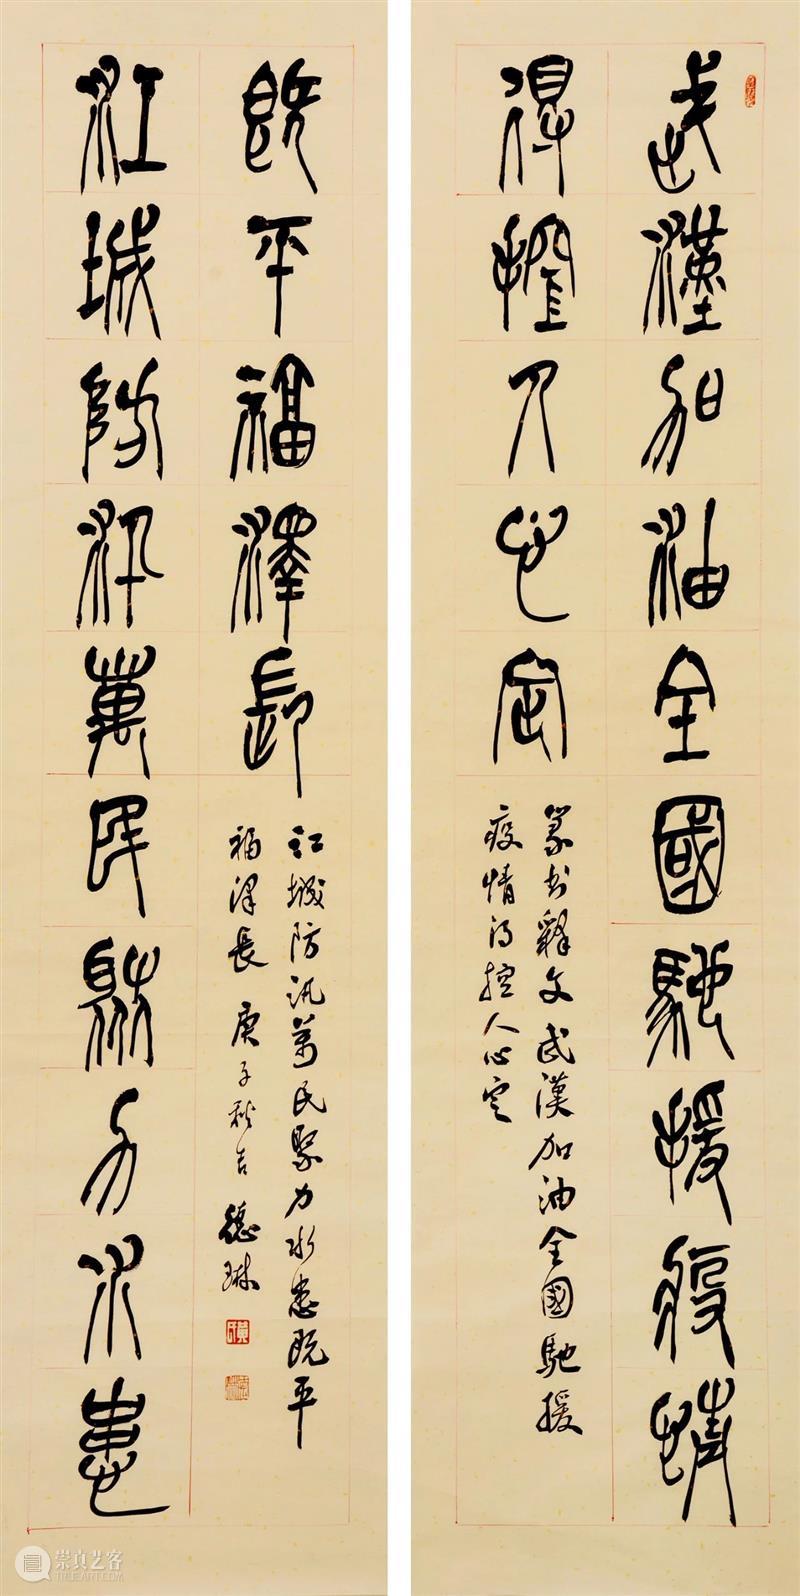 武漢加油全國馳援疫情
得控人心定
篆书釋文武漢加油全國馳援
疫情得控人心定
江城防汛萬民聚力水患
既平福澤長
江城防汛萬民聚力水患既平
福泽長 庚子秋吉 德琳
崇真艺客